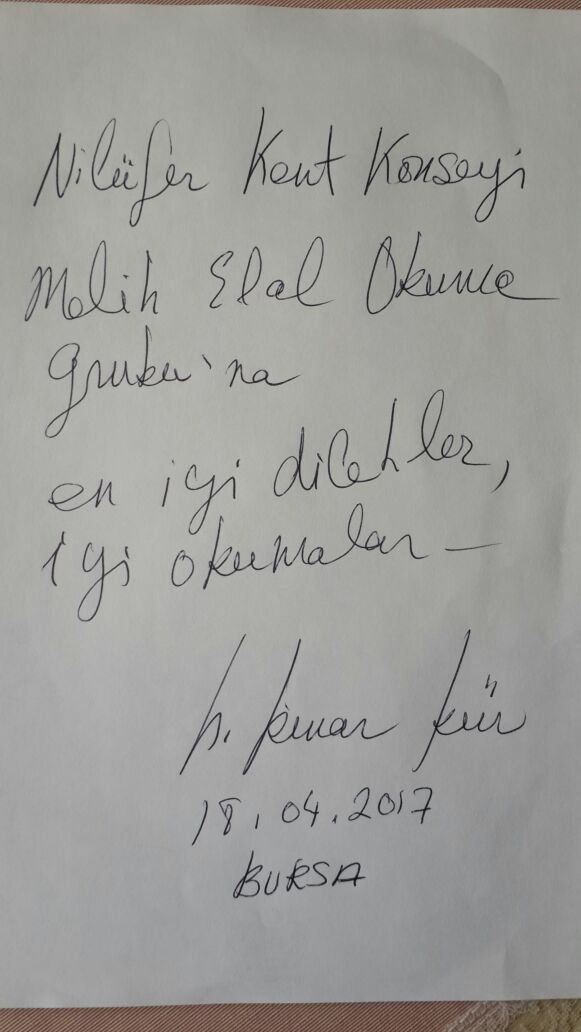 Nilüfer Kent Konseyi
Melih Elal Okuma
Grubu'na
en iyi dilekler,
iyi okumalar—
p. kür
18.04.2017
BURSA